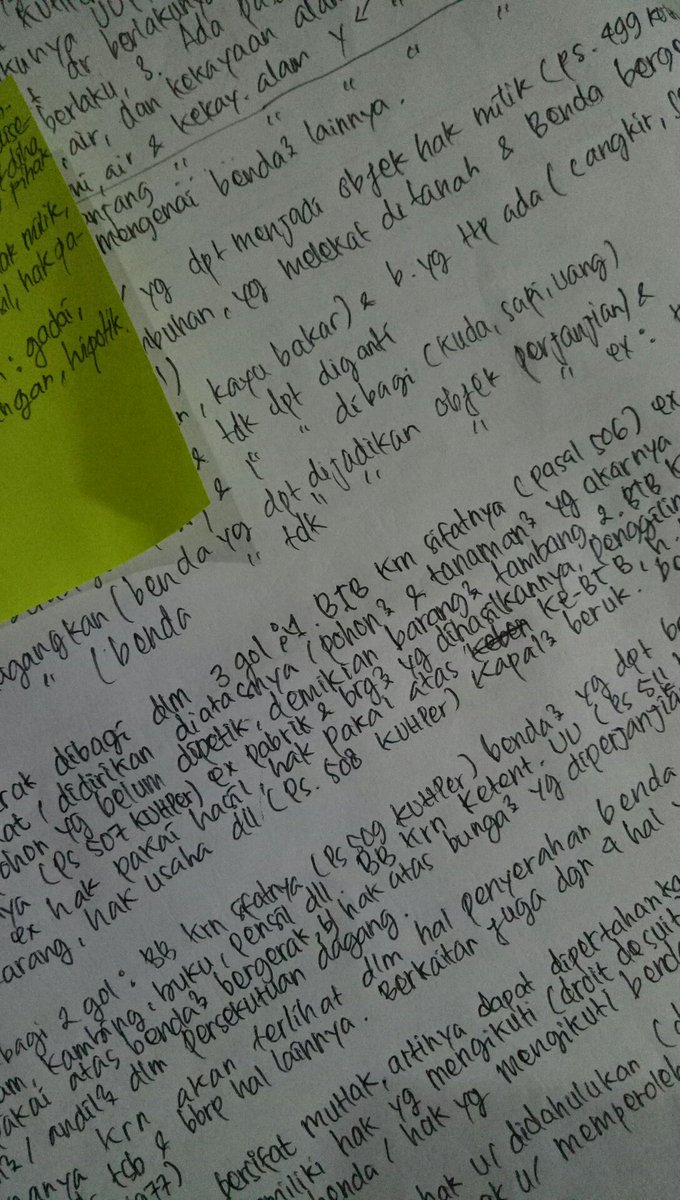 berlaku, 3. Ada
air, dan kekayaan alam
air & kekay. alam Y
mengenai benda2 lainnya.
yg dpt menjadi objek hak milik (ps. 499
mbuhan, yg melekat ditanah & Benda berge
, kayu bakar) & b. yg ttp ada (cangkir, s
& tdk dpt diganti
& " " dibagi (kuda, sapi, uang)
agangkan (benda yg dpt dijadikan objek perjanjian) &
" (benda " tdk " " " " ex:
rak dibagi dlm 3 gol : 1. BTB krn sifatnya (pasal 506) ex
at, didirikan diatasnya (pohon2 & tanaman2 yg akarnya
ohon yg belum dipetik, demikian barang2 tambang 2. BTB k
ya (ps 507 KUHPer) ex pabrik & brg2 yg dihasilkannya, penggilin
ex hak pakai hasil, hak pakai atas ke-BTB, h.
arang, hak usaha dll (ps. 508 KUHPer) kapal2 beruk.
bagi 2 gol : BB krn sifatnya (ps 509 KUHPer) benda2 yg dpt be
am, kambing, buku, pensil dll. BB krn ketent. UU (ps 511
akai atas benda2 bergerak, hak atas bunga2 yg diperjanjia
andil2 dlm persekutuan dagang.
anya krn akan terlihat dlm hal penyerahan benda
tsb & bbrp hal lainnya. Berkaitan juga dgn 4 hal y
bersifat mutlak, artinya dapat dipertahanka
miliki hak yg mengikuti (droit de suit
benda / hak yg mengikuti benda
hak u/ didahulukan (d
u/ memperoleh
pihak
ak milik,
il, hak ga-
: gadai,
ngan, hipotik.